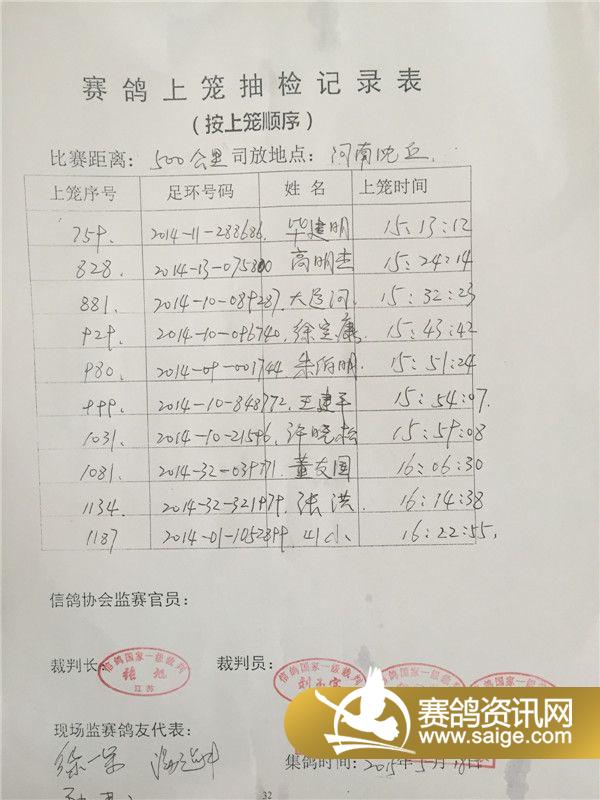 赛鸽上笼抽检记录表
（按上笼顺序）
比赛距离：500公里司放地点：河南沈丘.
上笼序号 足环号码 姓名 上笼时间
759. 2014-11-288686. 毕建明 15:13:12
828. 2014-13-075800 高明杰 15:24:14
881. 2014-10-089287. 大运河. 15:32:23
929. 2014-10-096740. 徐宝康. 15:43:42
980. 2014-09-001744 朱伯明. 15:51:24
999. 2014-10-848972. 王建平 15:54:07.
1031. 2014-10-21596 许晓松 15:59:08
1081. 2014-32-039771 董友国 16:06:30
1134. 2014-32-321979. 张洪 16:14:38
1187 2014-01-1052899. 16:22:55.
信鸽协会监赛官员：
裁判长 信鸽国家一级裁判 江苏
裁判员： 信鸽国家一级裁判
现场监赛鸽友代表：
徐一
集鸽时间：2015年5月18日
32
赛鸽资讯网
www.saige.com